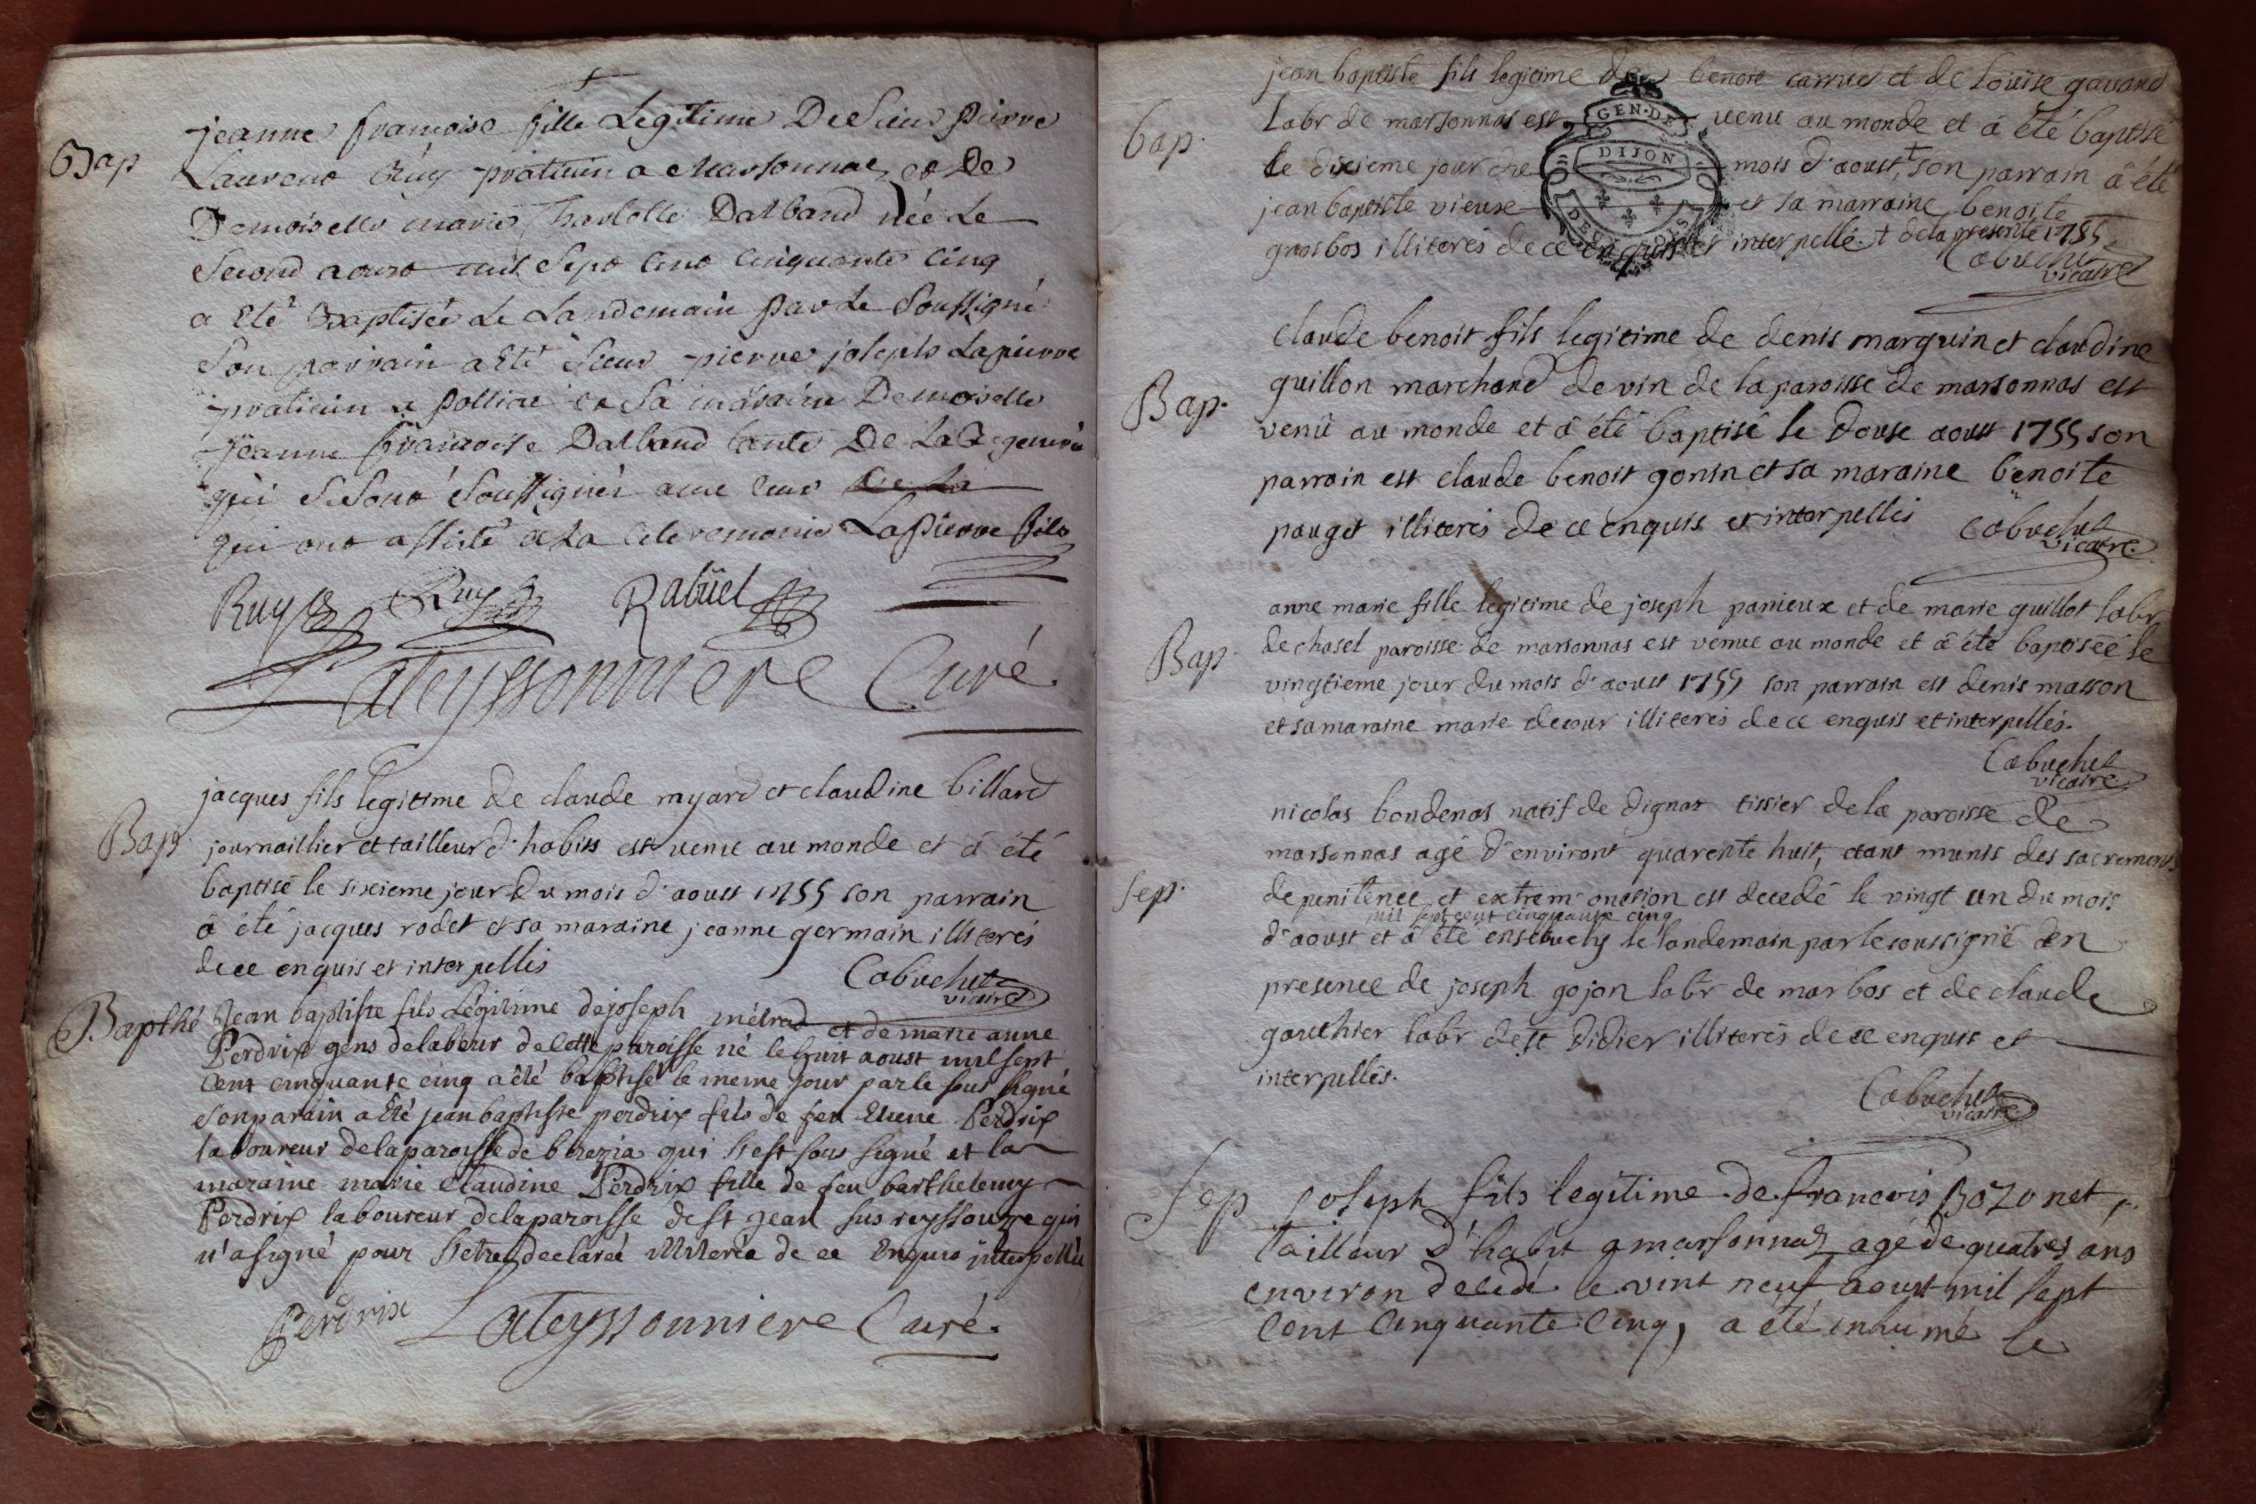 Bap
jeanne françoise fille Legitime De Sieur pierre
Laurent Ruy praticien a Marsonnas et De
Demoiselle marie Charlotte Dalband née Le
Second aoust mil Sept Cent Cinquante Cinq
a Eté Baptisée Le Landemain par Le Soussigné
Son parrain a Eté Sieur pierre joseph Lapierre
praticien a et Sa maraine Demoiselle
jeanne françoise Dalband tante De La
qui se sont soussignés avec ceux de La
qui ont assisté a La Ceremonie LaPierre fils
Ruy Ruy Rabüel
Lateyssonniere Curé.
Bap
jacques fils legitime de claude myard et claudine billard
journaillier et tailleur d'habits est venu au monde et â été
baptisé le sixieme jour du mois d'aoust 1755 son parrain
â été jacques rodet et sa maraine jeanne germain illiterés
de ce enquis et interpellés
Cabuchet
vicaire
Bapthé
Jean baptiste fils Légitime de joseph métrad et de marie anne
Perdrix gens de labeur de cette paroisse né le huit aoust mil sept
Cent cinquante cinq a êté baptisé le meme jour par le sous signé
Son parain a Eté jean baptiste perdrix fils de feu Perdrix
laboureur de la paroisse de berezia qui s'est sous signé et la
maraine marie Claudine Perdrix fille de feu barthelemy
Perdrix laboureur de la paroisse de st jean sus reyssouze qui
n'a signé pour s'etre declarée illiterée de ce Enquis interpellée
Perdrix Lateyssonniere Curé.
bap.
jean baptiste fils legitime de benoit carruet et de louise gavand
labr de marsonnas est venu au monde et â été baptisé
le dixieme jour du mois d'aoust,† son parrain â été
jean baptiste vieux et sa marraine benoite
grosbos illiterés de ce enquis et interpellé. † de la presente 1755
Cabuchet
vicaire
GEN·DE
DIJON
Bap.
claude benoit fils legitime de denis marguin et claudine
guillon marchand de vin de la paroisse de marsonnas est
venû au monde et â été baptisé le douse aoust 1755 son
parrain est claude benoit gonin et sa maraine benoite
pauget illiterés de ce enquis et interpellés
Cabuchet
vicaire
Bap.
anne marie fille legitime de joseph panieux et de marie guillot labr
de chasel paroisse de marsonnas est venue au monde et â été baptisée le
vingtieme jour du mois d'aoust 1755 son parrain est denis masson
et sa maraine marie decour illiterés de ce enquis et interpellés.
Cabuchet
vicaire
sep.
nicolas bondenas natif de dignat tissier de la paroisse de
marsonnas agé d'environt quarente huit, etant munis des sacrements
de penitence et extrem'onction est decedé le vingt un du mois
mil sept cent cinquante cinq
d'aoust et â été ensevely le landemain par le soussigné en
presence de joseph gojon labr de marbos et de claude
gauthier labr de st didier illiterés de ce enquis et
interpellés.
Cabuchet
vicaire
Sep
Joseph fils legitime de francois Bozonet,
tailleur d'habit a marsonnas agé de quatres ans
environ decedé le vint neuf aoust mil sept
Cent Cinquante Cinq, a été inhumé le